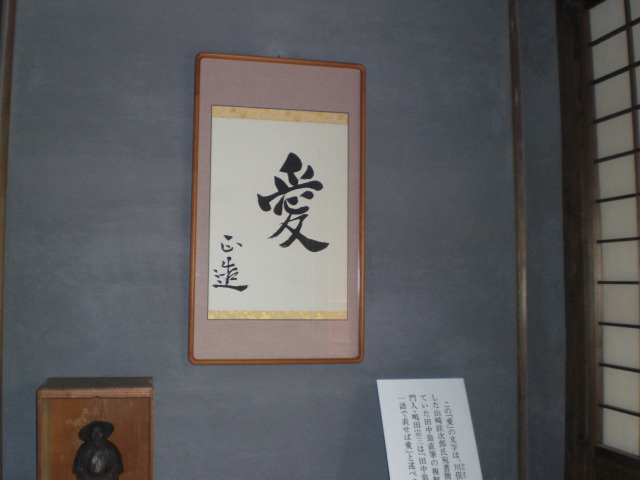 愛
正造
この「愛」の文字は、川俣
した山崎銈次郎氏宛書簡
ていた田中翁直筆の複製
門人・嶋田宗三は「田中翁
一語で表せば愛」と述べ